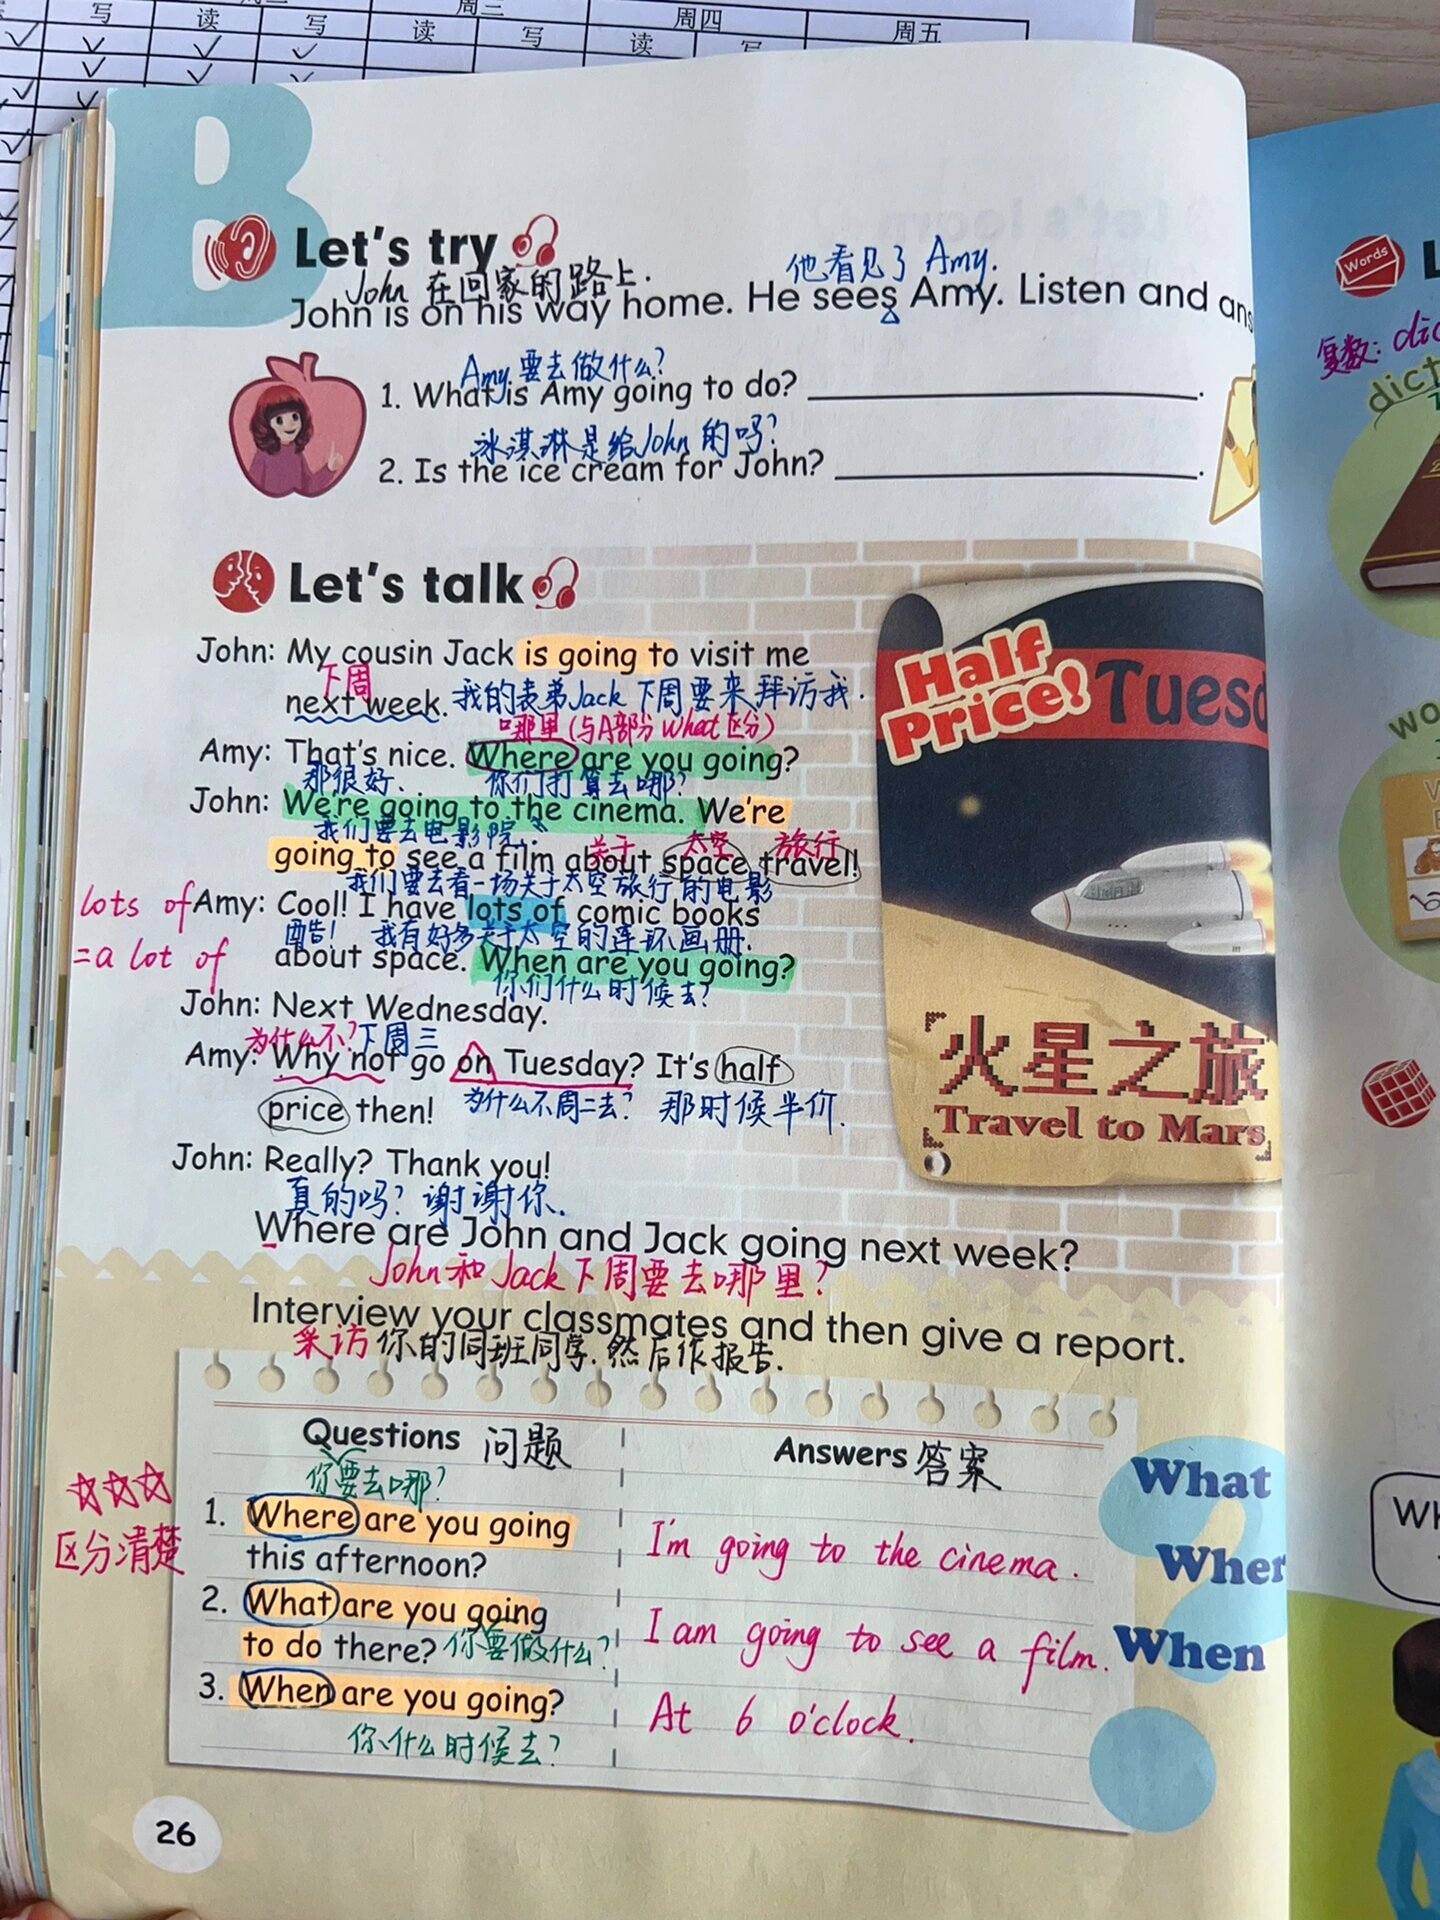 写 读 写 周三 读 写 周四 读 写 周五
B
Let's try
John 在回家的路上.
他看见了 Amy.
John is on his way home. He sees Amy. Listen and ans
Amy 要去做什么?
1. What is Amy going to do? .
冰淇淋是给John 的吗?
2. Is the ice cream for John? .
Let's talk
John: My cousin Jack is going to visit me
下周
next week. 我的表弟Jack 下周要来拜访我.
哪里(与A部分What区分)
Amy: That's nice. Where are you going?
那很好. 你们打算去哪?
John: We're going to the cinema. We're
我们要去电影院.
关于 太空 旅行
going to see a film about space travel!
我们要去看一场关于太空旅行的电影
lots of
Amy: Cool! I have lots of comic books
酷! 我有好多关于太空的连环画册.
= a lot of
about space. When are you going?
你们什么时候去?
John: Next Wednesday.
为什么不? 下周三
Amy: Why not go on Tuesday? It's half
price then! 为什么不周二去? 那时候半价.
John: Really? Thank you!
真的吗? 谢谢你.
Half Price!
Tuesd
火星之旅
Travel to Mars
Where are John and Jack going next week?
John 和 Jack 下周要去哪里?
Interview your classmates and then give a report.
采访 你的同班同学. 然后作报告.
Questions 问题
Answers 答案
你要去哪?
☆☆☆
区分清楚
1. Where are you going
this afternoon?
I'm going to the cinema.
2. What are you going
to do there? 你要做什么?
I am going to see a film.
3. When are you going?
At 6 o'clock.
你什么时候去?
What
Wher
When
26
Words
L
复数: dic
dict
wo
Wh